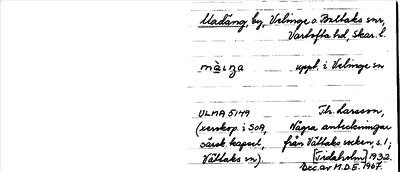 Madäng, by, Velinge o. Vättaks snr,
Vartofta hd, Skar. l.
màıŋa uppl. i Velinge sn
ULMA 5149 Th. Larsson,
(xeroxkop. i SOA, Några anteckningar
särsk. kapsel, från Vättaks socken, s. 1;
Vättaks sn). [Tidaholm] 1932.
Exc. av M.D.E. 1967.